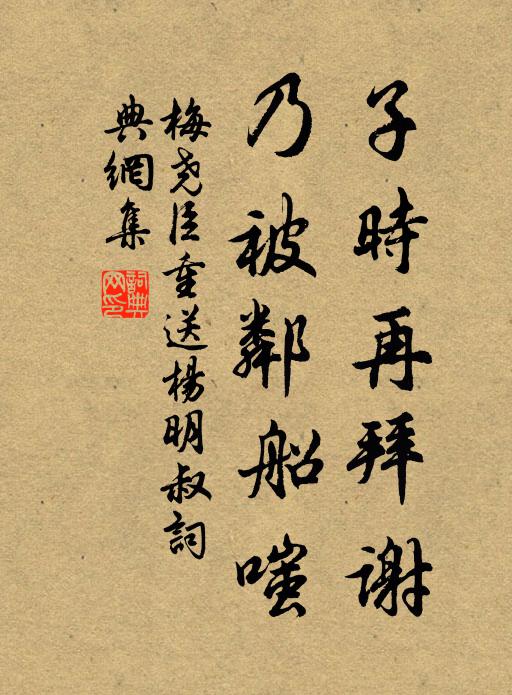 子時再拜謝
乃被鄰船嗤
梅尧臣重送楊明叔詞
典網集
詞典网印